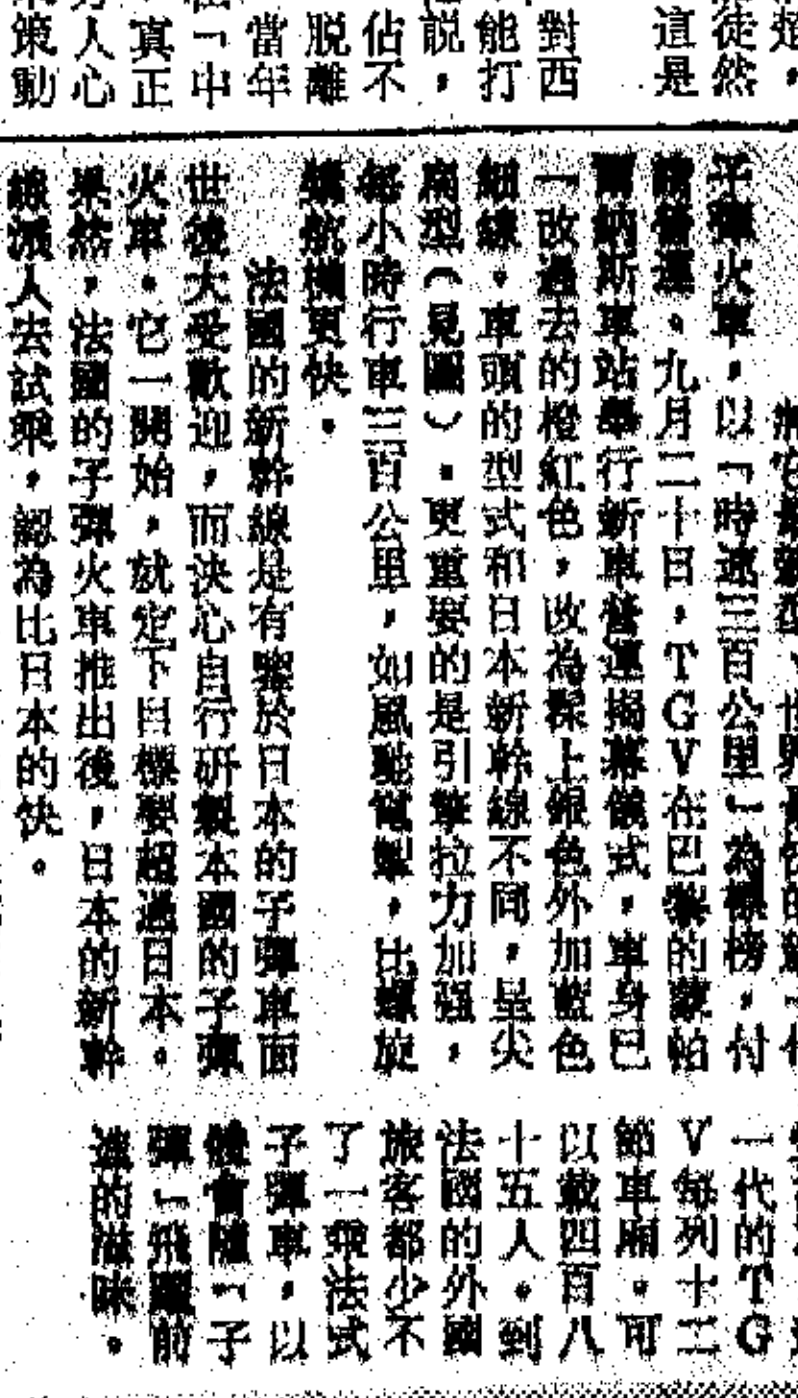 趕，
徒然
這是
對西
能打
說，
佔不
脫離
當年
「中
真正
人心
策動
將它最新型、世界最快的新一代
子彈火車，以「時速三百公里」為標榜，付
諸營運。九月二十日，TGV在巴黎的蒙帕
爾納斯車站舉行新車營運揭幕儀式，車身已
一改過去的橙紅色，改為漆上銀色外加藍色
細線。車頭的型式和日本新幹線不同，呈尖
扁型（見圖）。更重要的是引擎拉力加強，
每小時行車三百公里，如風馳電掣，比螺旋
槳航機更快。
法國的新幹線是有鑒於日本的子彈車面
世後大受歡迎，而決心自行研製本國的子彈
火車。它一開始，就定下目標要超過日本。
果然，法國的子彈火車推出後，日本的新幹
線派人去試乘，認為比日本的快。
一代的TG
V每列十二
節車廂。可
以載四百八
十五人。到
法國的外國
旅客都少不
了一乘法式
子彈車，以
體會隨「子
彈」飛躍前
進的滋味。